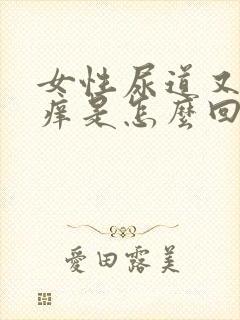 女性尿道又
痒是怎麼回
愛田露美